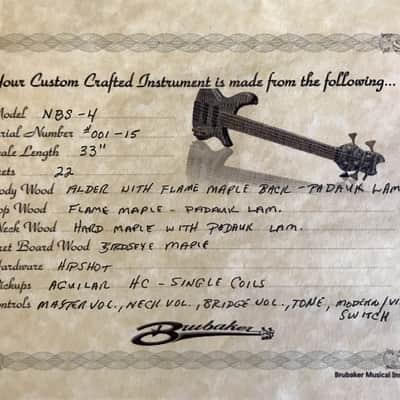 our Custom Crafted Instrument is made from the following...
Model NBS-4
erial Number #001-15
cale Length 33"
rets 22
ody Wood ALDER WITH FLAME MAPLE BACK - PADAUK LAM
op Wood FLAME MAPLE - PADAUK LAM.
Neck Wood HARD MAPLE WITH PADAUK LAM.
ret Board Wood BIRDSEYE MAPLE
Hardware HIPSHOT
ickups AGUILAR HC - SINGLE COILS
ontrols MASTER VOL., NECK VOL., BRIDGE VOL., TONE, MODERN/VI
SWITCH
Brubaker
Brubaker Musical Ins